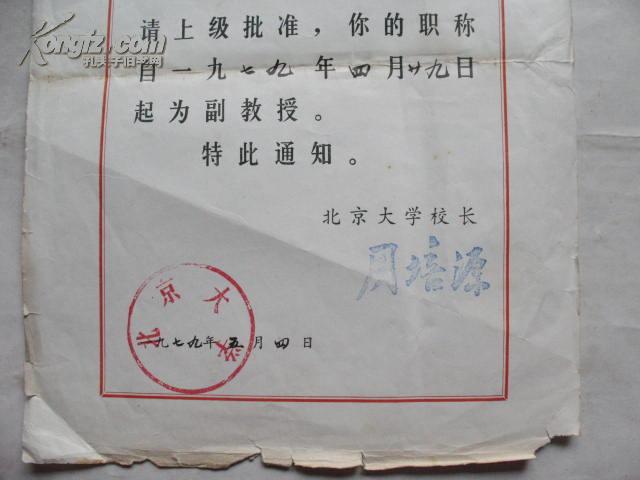 Kongfz.com
孔夫子旧书网
请上级批准，你的职称
自一九七九年四月廿九日
起为副教授。
特此通知。
北京大学校长
周培源
北京大学
一九七九年五月四日